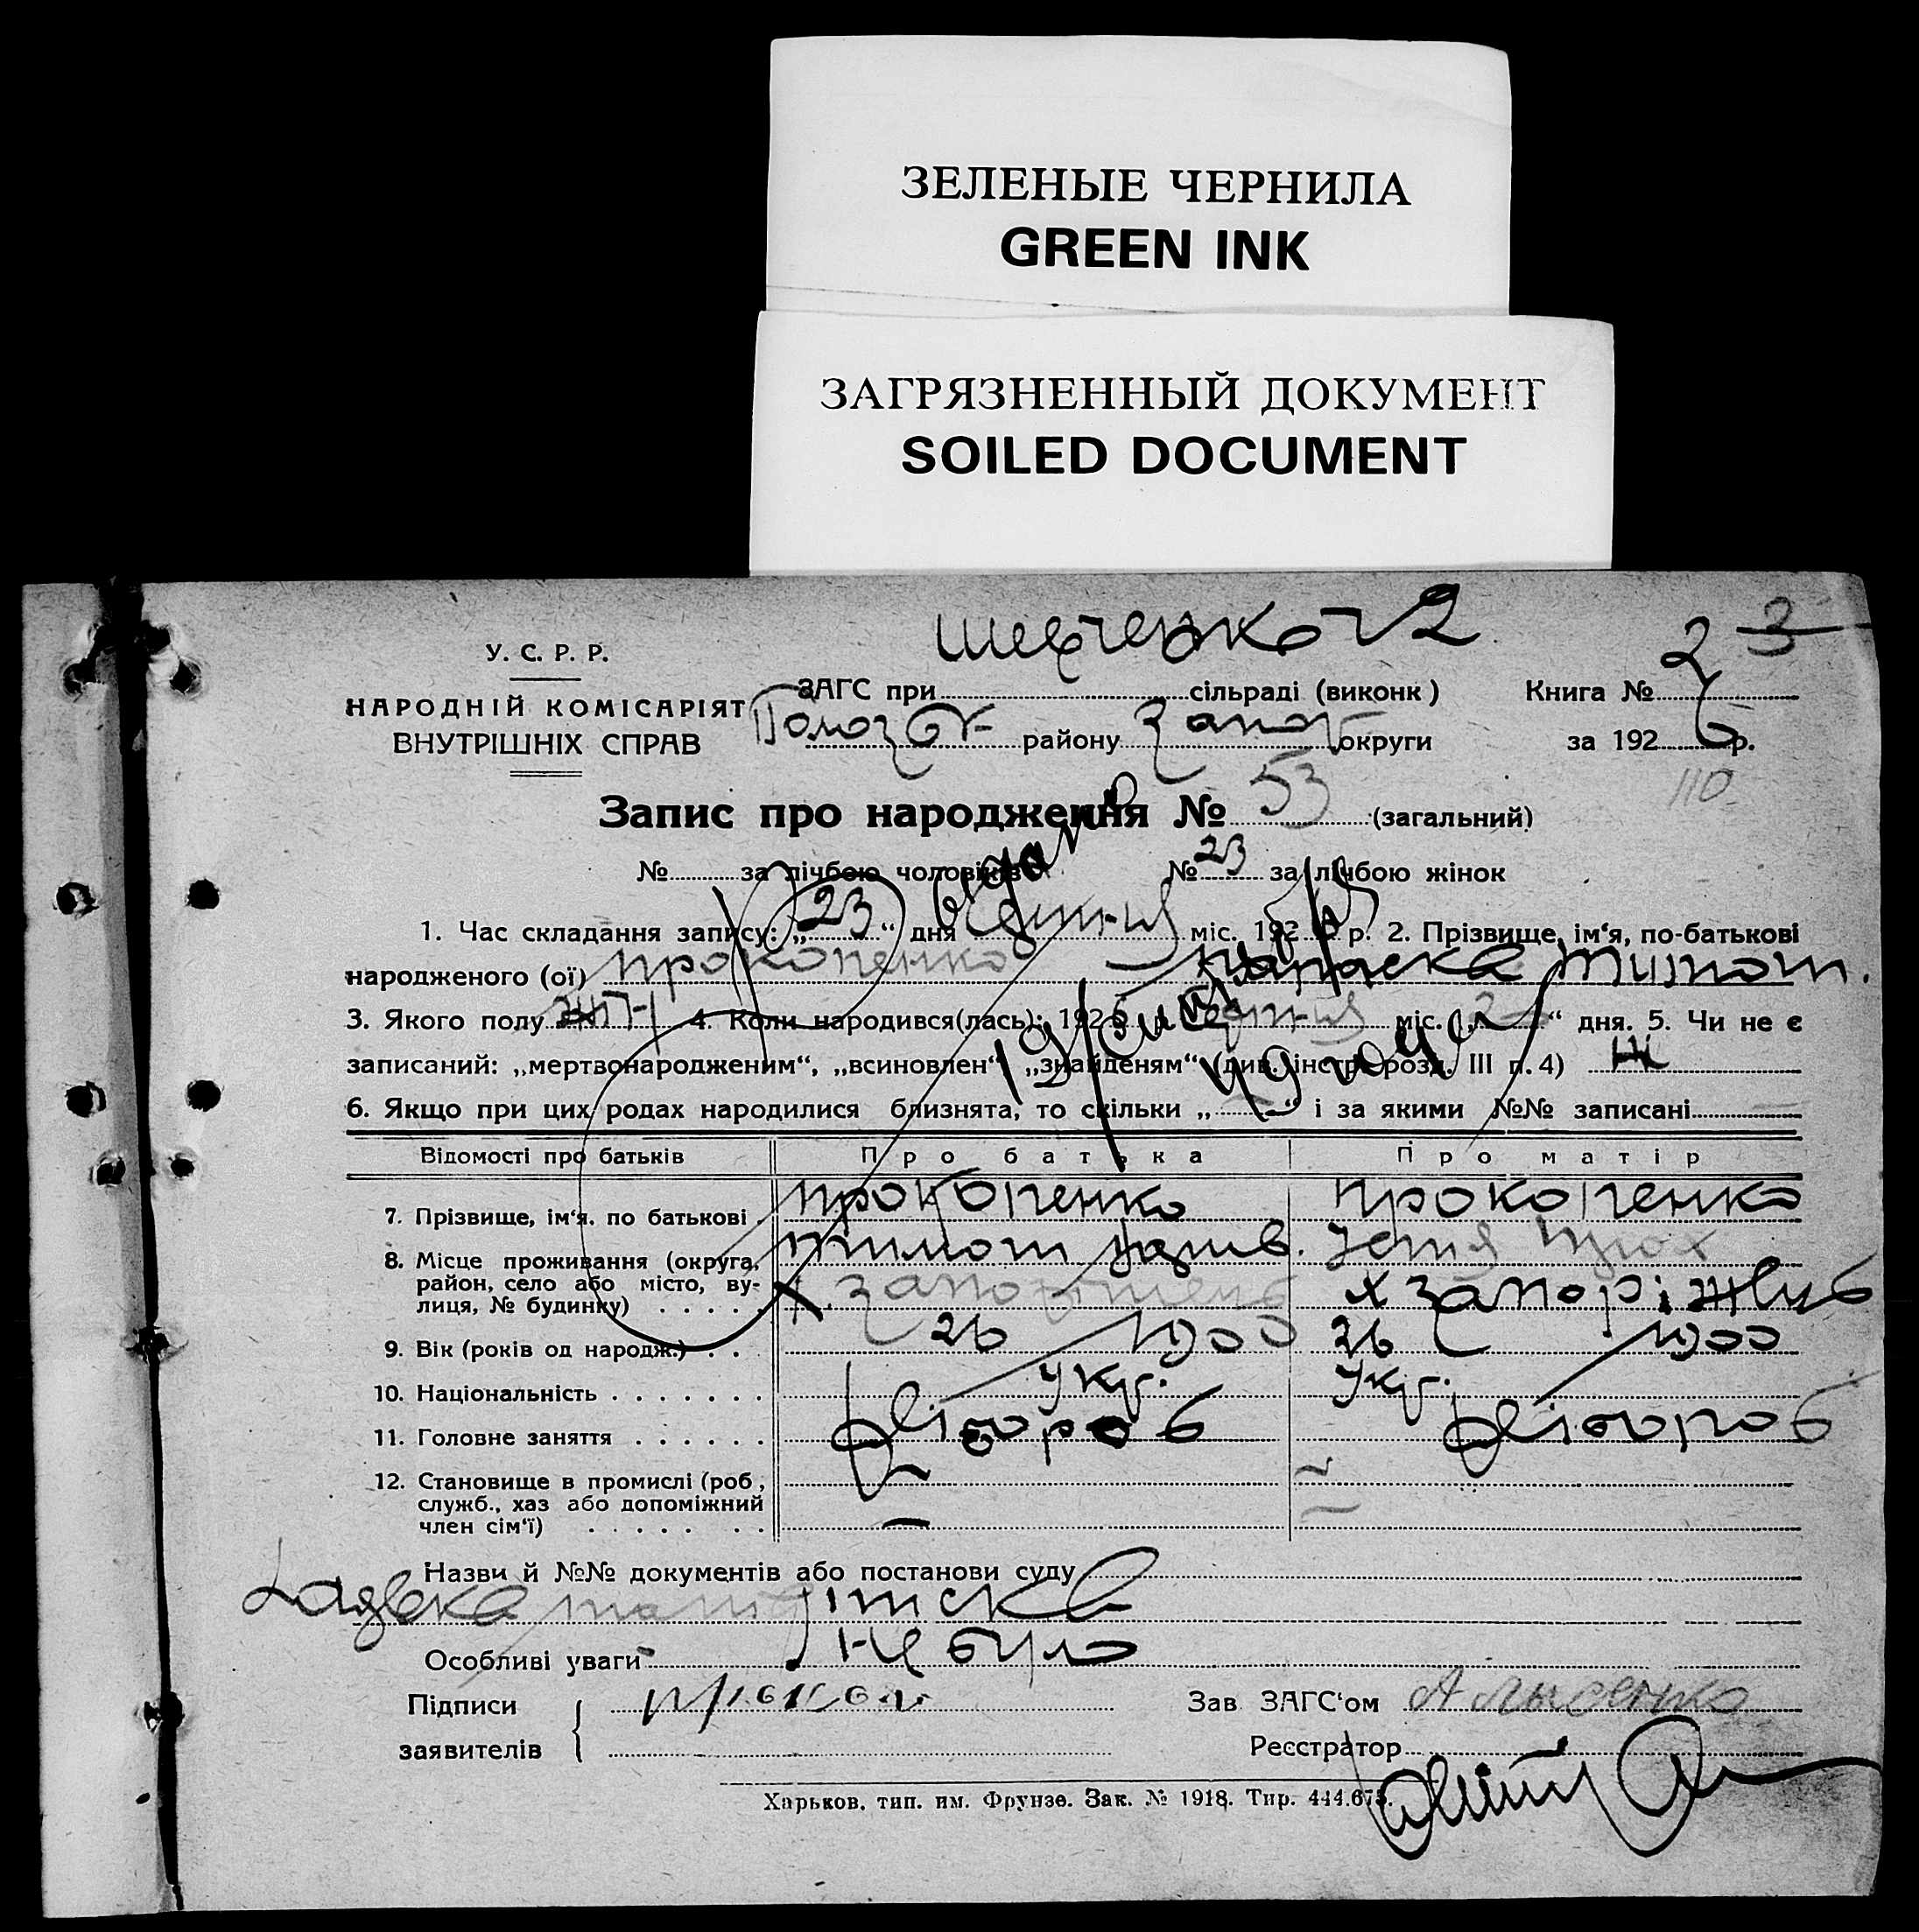 ЗЕЛЕНЫЕ ЧЕРНИЛА
GREEN INK
ЗАГРЯЗНЕННЫЙ ДОКУМЕНТ
SOILED DOCUMENT
Шевченков 2
2 3
У. С. Р. Р.
НАРОДНІЙ КОМІСАРІЯТ
ВНУТРІШНІХ СПРАВ
ЗАГС при сільраді (виконк)
Книга № 2
району Запор округи
за 1926 р.
110
Запис про народження № 53 (загальний)
№ за лічбою чоловіків № 23 за лічбою жінок
1. Час складання запису: „23“ дня міс. 192 р. 2. Прізвище, ім'я, по-батькові
народженого (ої) Прокопенко Параска Тимот.
3. Якого полу 4. Коли народився(лась): 1926 міс. „2“ дня. 5. Чи не є
записаний: „мертвонародженим“, „всиновлен“, „знайденям“ (див. інстр. розд. III п. 4)
6. Якщо при цих родах народилися близнята, то скільки „ “ і за якими №№ записані
Відомості про батьків Про батька Про матір
7. Прізвище, ім'я. по батькові Прокопенко Прокопенко
Тимот Устя
8. Місце проживання (округа, район, село або місто, вулиця, № будинку) х. Запоріжець х Запоріжець
9. Вік (років од народж.) 26 1900 26 1900
10. Національність Укр. Укр.
11. Головне заняття Хлібороб Хлібороб
12. Становище в промислі (роб, служб., хаз або допоміжний член сім'ї)
Назви й №№ документів або постанови суду
Заявка
Особливі уваги не було
Підписи
заявителів
Зав ЗАГС'ом А Лысенко
Реєстратор
Харьков. тип. им. Фрунзе. Зак. № 1918. Тир. 444.675.